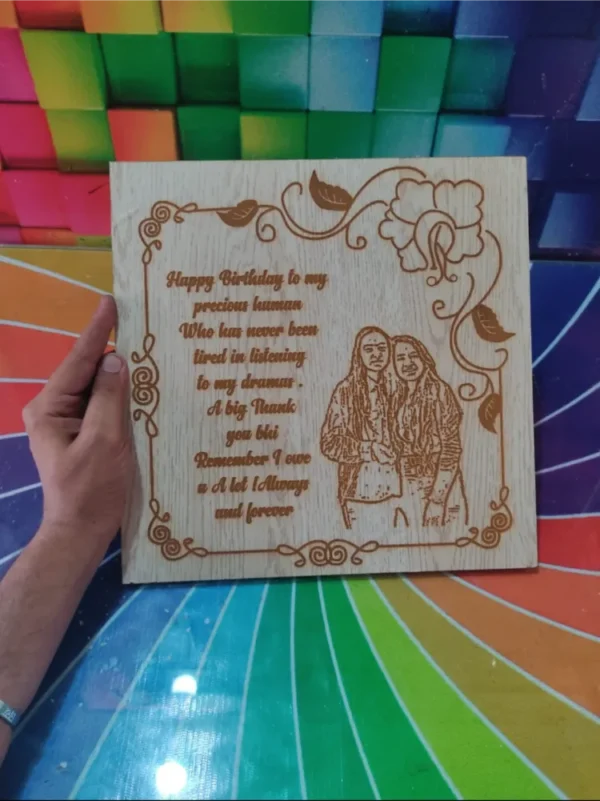 Happy Birthday to my
precious human
Who has never been
tired in listening
to my dramas .
A big Thank
you bhi
Remember I owe
u A lot !Always
and forever